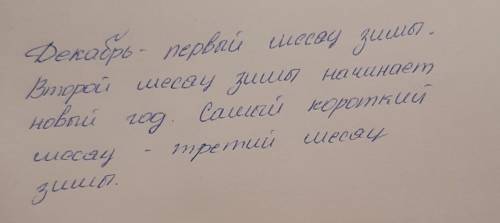 Декабрь - первый месац зимы.
Второй месац зимы начинает
новый год. Самый короткий
месац - третий месац
зимы.